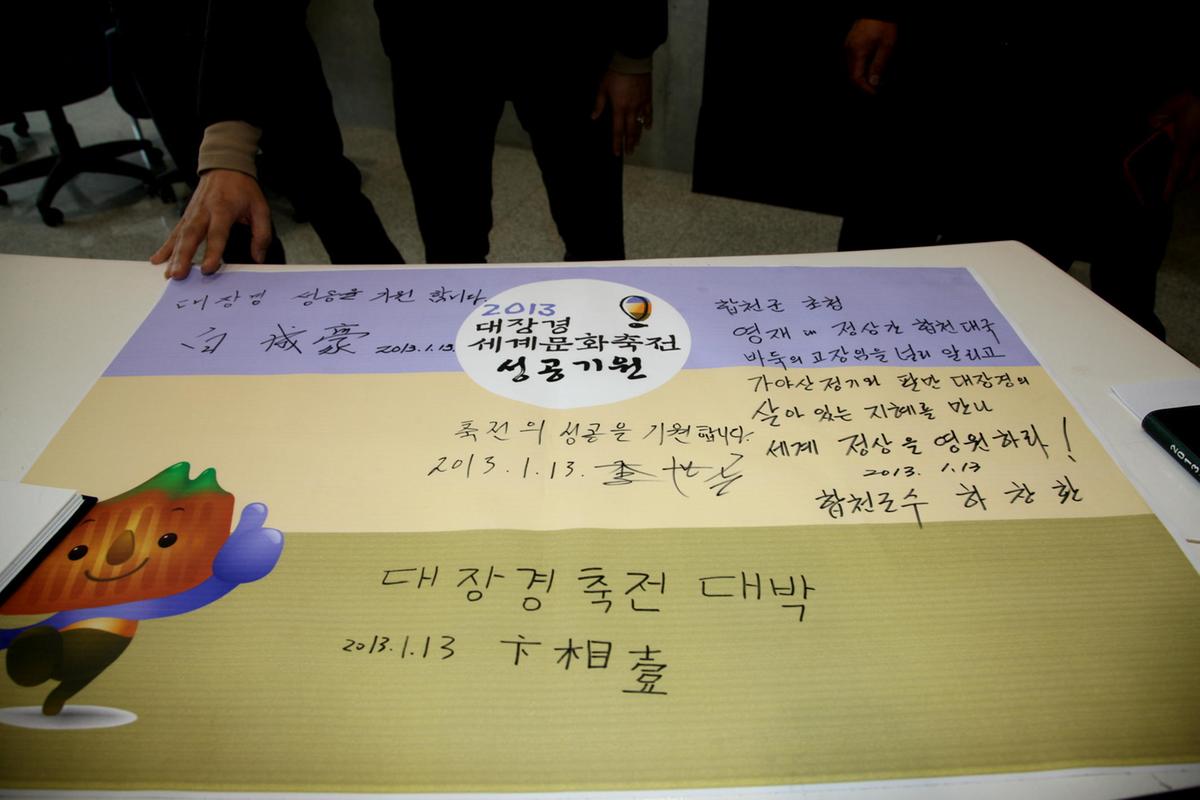 대장경 성공을 기원 합니다.
白 成豪 2013.1.13
2013
대장경
세계문화축전
성공기원
합천군 초청
영재 대 정상간 합천대국
바둑의 고장임을 널리 알리고
가야산 정기와 팔만대장경의
살아 있는 지혜를 만나
세계 정상을 영원하라!
2013. 1.13
합천군수 하창환
축전의 성공을 기원합니다.
2013.1.13. 李世乭
대장경축전 대박
2013.1.13 卞相壹
2013